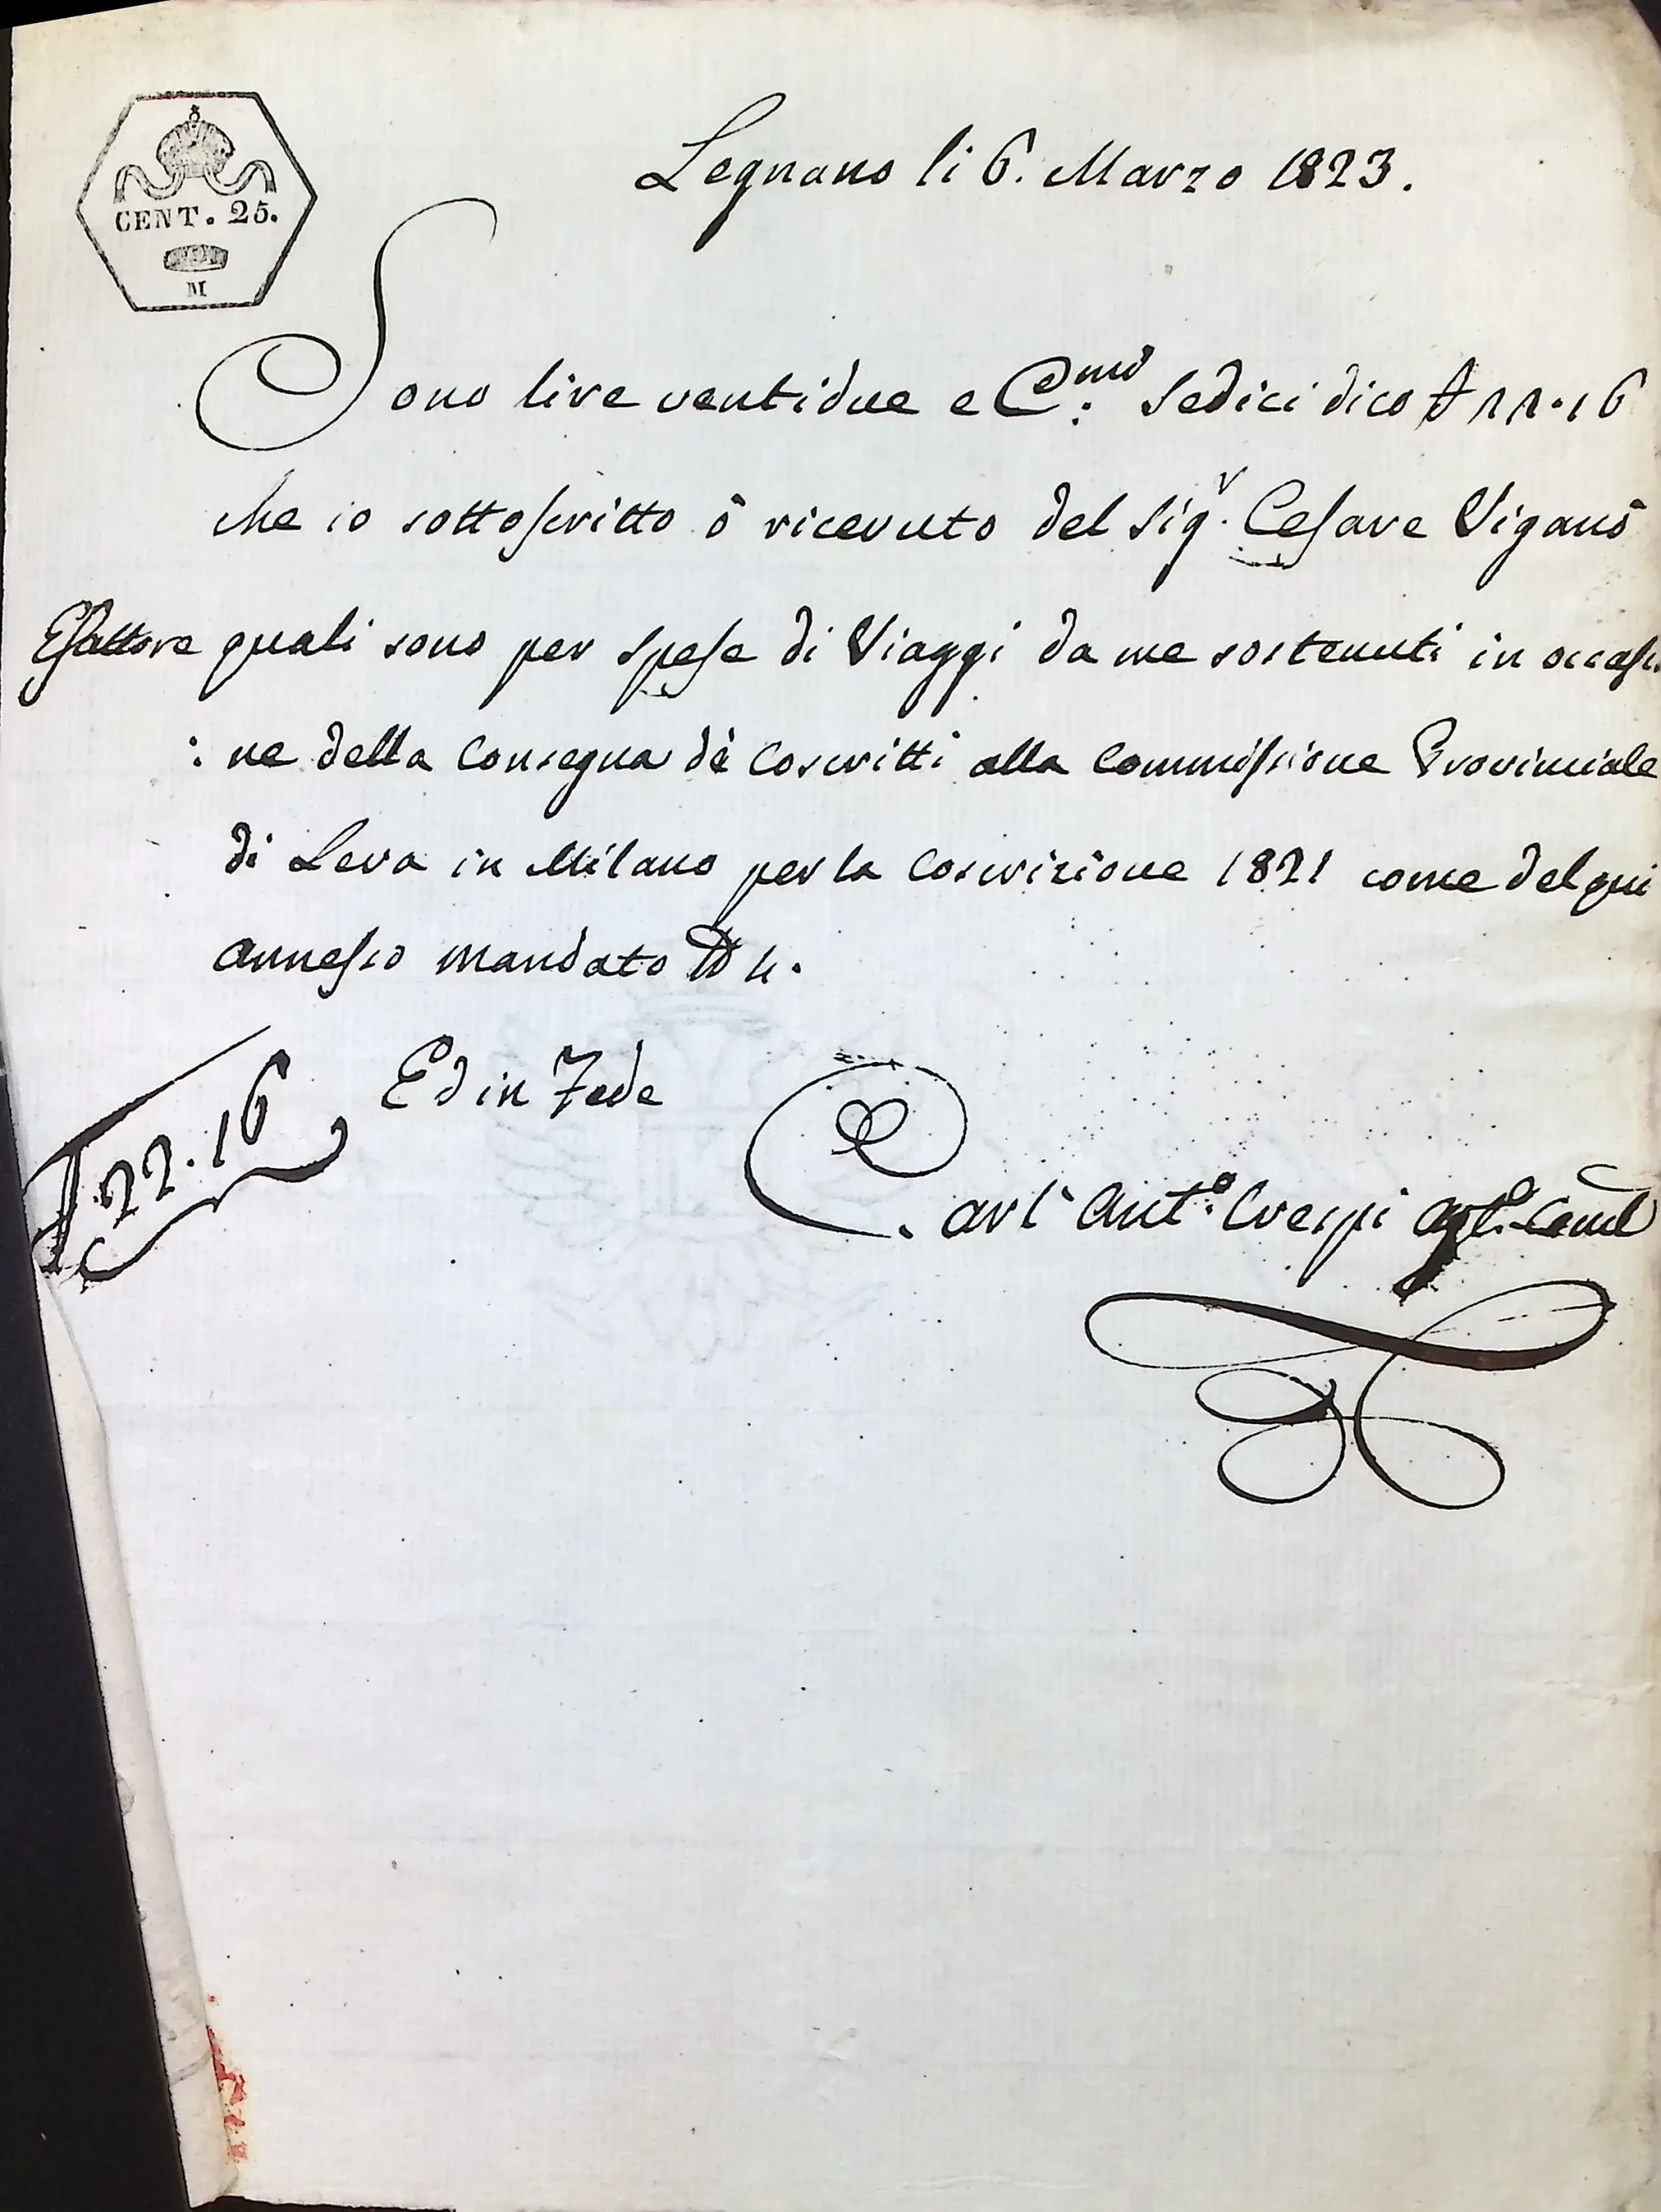 CENT. 25.
M
Legnano li 6. Marzo 1823.
Sono lire ventidue e C.mi Sedici dico £ 22.16
che io sottoscritto ò ricevuto del Sig.r Cesare Viganò
Esattore quali sono per spese di Viaggi da me sostenuti in occasio
: ne della Consegna dè Coscritti alla Commissione Provinciale
di Leva in Milano per la Coscrizione 1821 come del qui
annesso mandato N 4.
Ed in Fede
£ 22.16
Carl Ant.o Crespi